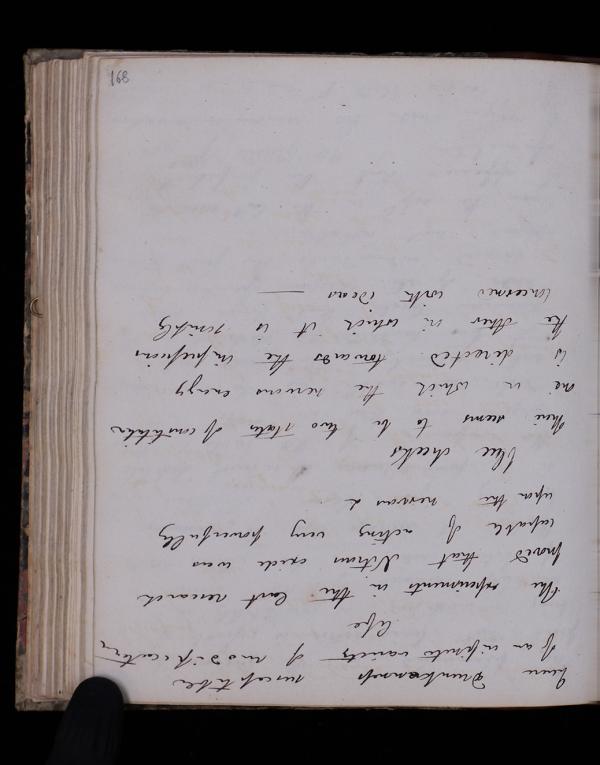 168
Drunkenness susceptible
of an infinite variety of modification
life
The experiments in the last research
proved that Nitrous oxide was
capable of acting very powerfully
upon the nervous
blue cheeks
There seems to be two states of constitution
one in which the nervous energy
is directed towards the impressions
the other in which it is
concerned with ideas